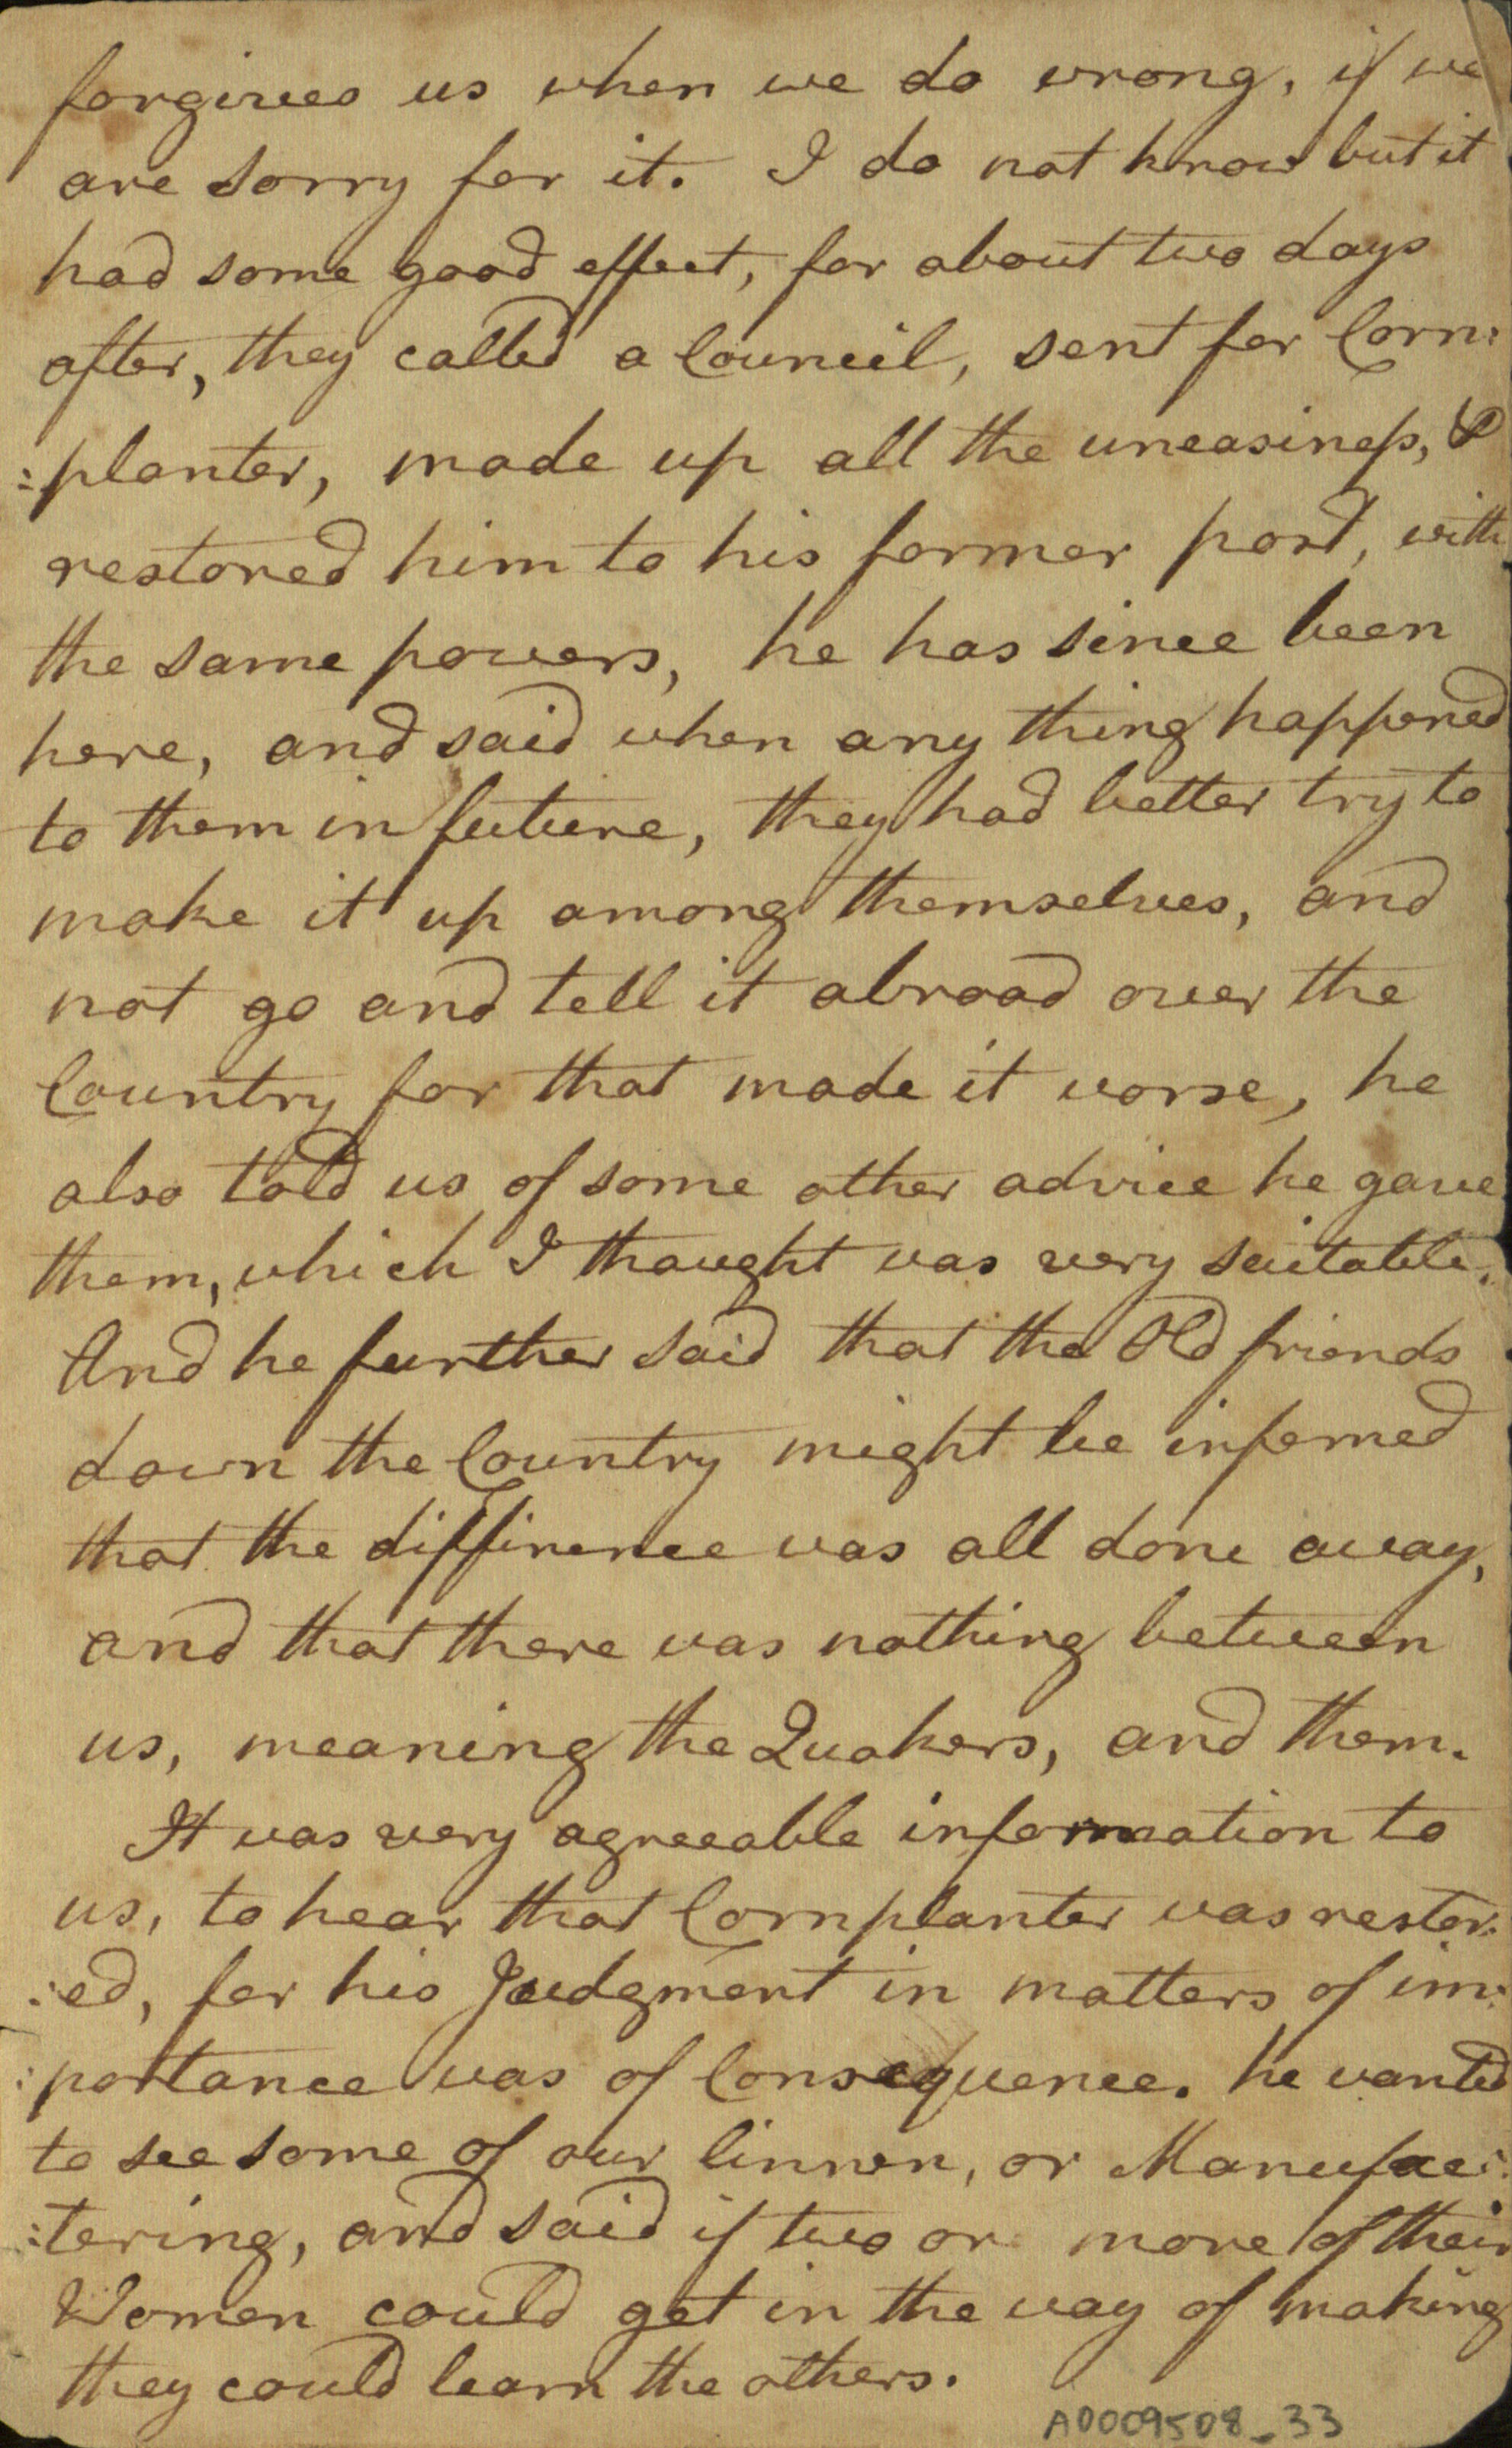 forgives us when we do wrong, if we
are sorry for it. I do not know but it
had some good effect, for about two days
after, they called a Council, sent for Corn:
:planter, made up all the uneasiness, &
restored him to his former post, with
the same powers, he has since been
here, and said when any thing happened
to them in future, they had better try to
make it up among themselves, and
not go and tell it abroad over the
Country for that made it worse, he
also told us of some other advice he gave
them, which I thought was very suitable.
And he further said that the Old friends
down the Country might be informed
that the difference was all done away,
and that there was nothing between
us, meaning the Quakers, and them.
It was very agreeable information to
us, to hear that Cornplanter was restor:
:ed, for his Judgment in matters of im:
:portance was of Consequence. he wanted
to see some of our linnen, or Manufac:
:tering, and said if two or more of their
Women could get in the way of making
they could learn the others.
A0009508_33